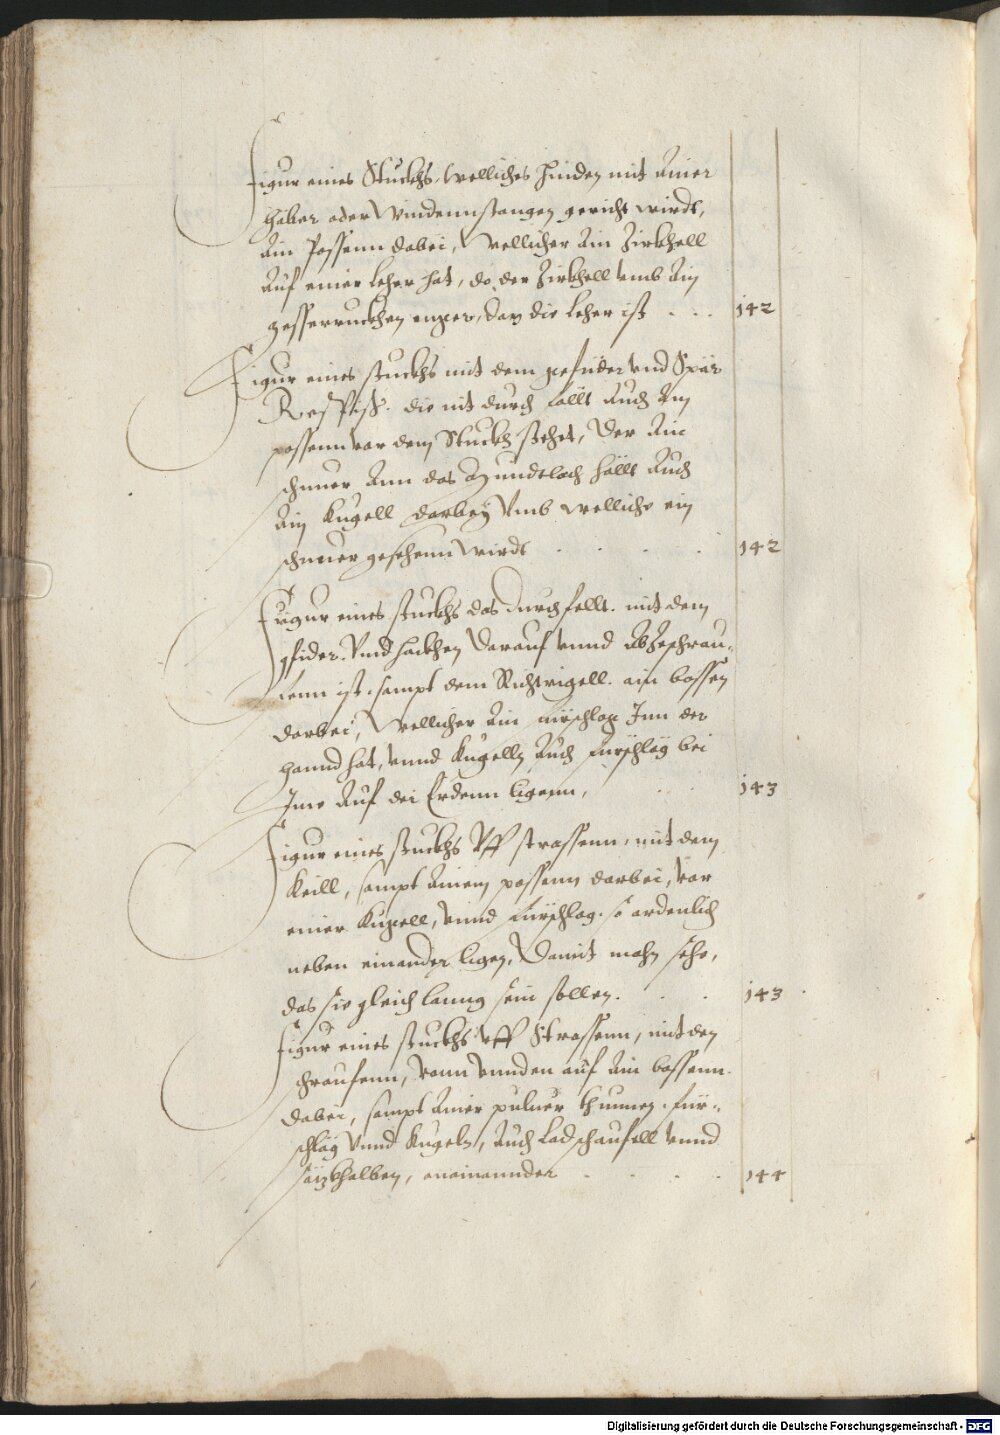 Figur eines Stuckhs, welliches hinden mit Ainer
heber oder Windennstangen gericht wirdt,
Ain Possenn dabei, Wellicher Ain Zirkhell
Auf einer Leher hat, do der Zirkhell umb Ain
Messerruckhen enger, dan die Leher ist . . . 142
Figur eines stuckhs mit dem gefider und Spär
die nit durch fällt Auch Ain
possenn vor dem Stuckh stehet, Der Ain
schnuer Ann das Mundtloch hällt Auch
Ain Kugell darbey Umb welliche ein
schnuer gesehenn Wirdt . . . . 142
Figur eines stuckhs das durchfellt. mit dem
gfider. Unnd hackhen darauf unnd Abzeschrau-
fenn ist, sampt dem Richtrigell. ain bossen
darbei, Wellicher Ain fürschlag Inn der
Hannd hat, unnd Kugelln Auch fürschläg bei
Ime Auf der Erdenn ligenn, . . 143
Figur eines stuckhs Uff strassenn, mit dem
Keill, sampt Ainem possenn darbei, vor
einer Kugell, unnd fürschlag. so ordenlich
neben einander ligen, Damit mahn sehe,
das sie gleich lanng sein sollen. . . 143
Figur eines stuckhs Uff Strassenn, mit den
schraufenn, vonn unnden auf Ain bossenn
dabei, sampt Ainer puluer thunnen. für-
schläg Unnd Kugeln, Auch Ladschaufell unnd
sezkholben, aneinannder . . . . 144
Digitalisierung gefördert durch die Deutsche Forschungsgemeinschaft - DFG